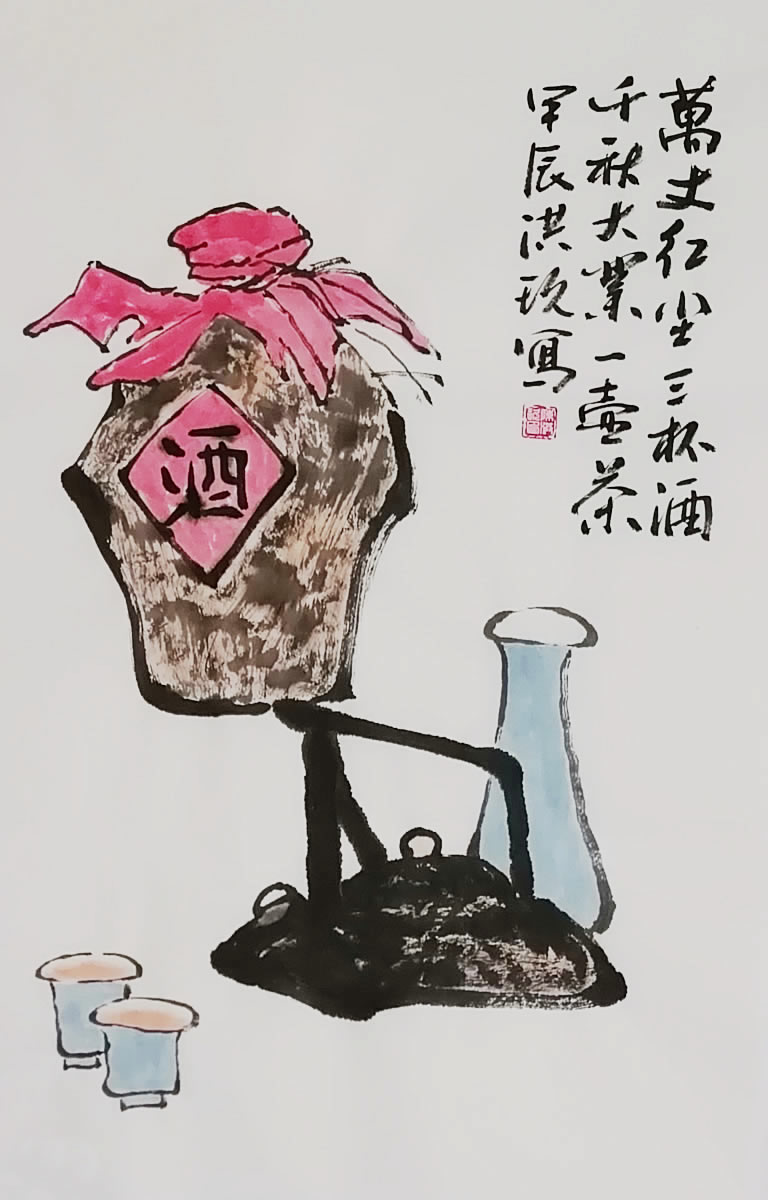 萬丈红尘三杯酒
千秋大業一壶茶
甲辰洪玖寫
酒